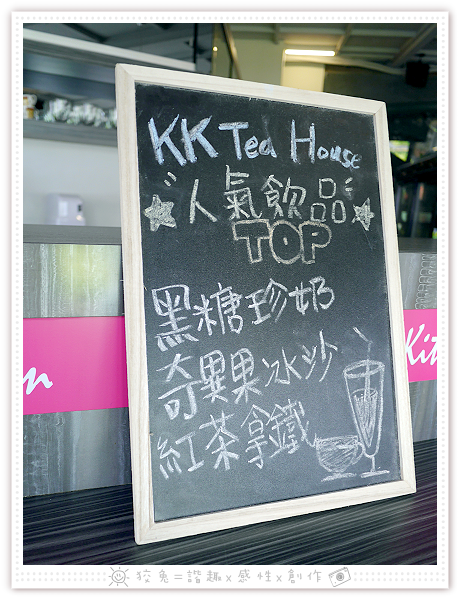 KK Tea House
人氣飲品
TOP
黑糖珍奶
奇異果冰沙
紅茶拿鐵
n
Kit
狡兔=諧趣x感性x創作